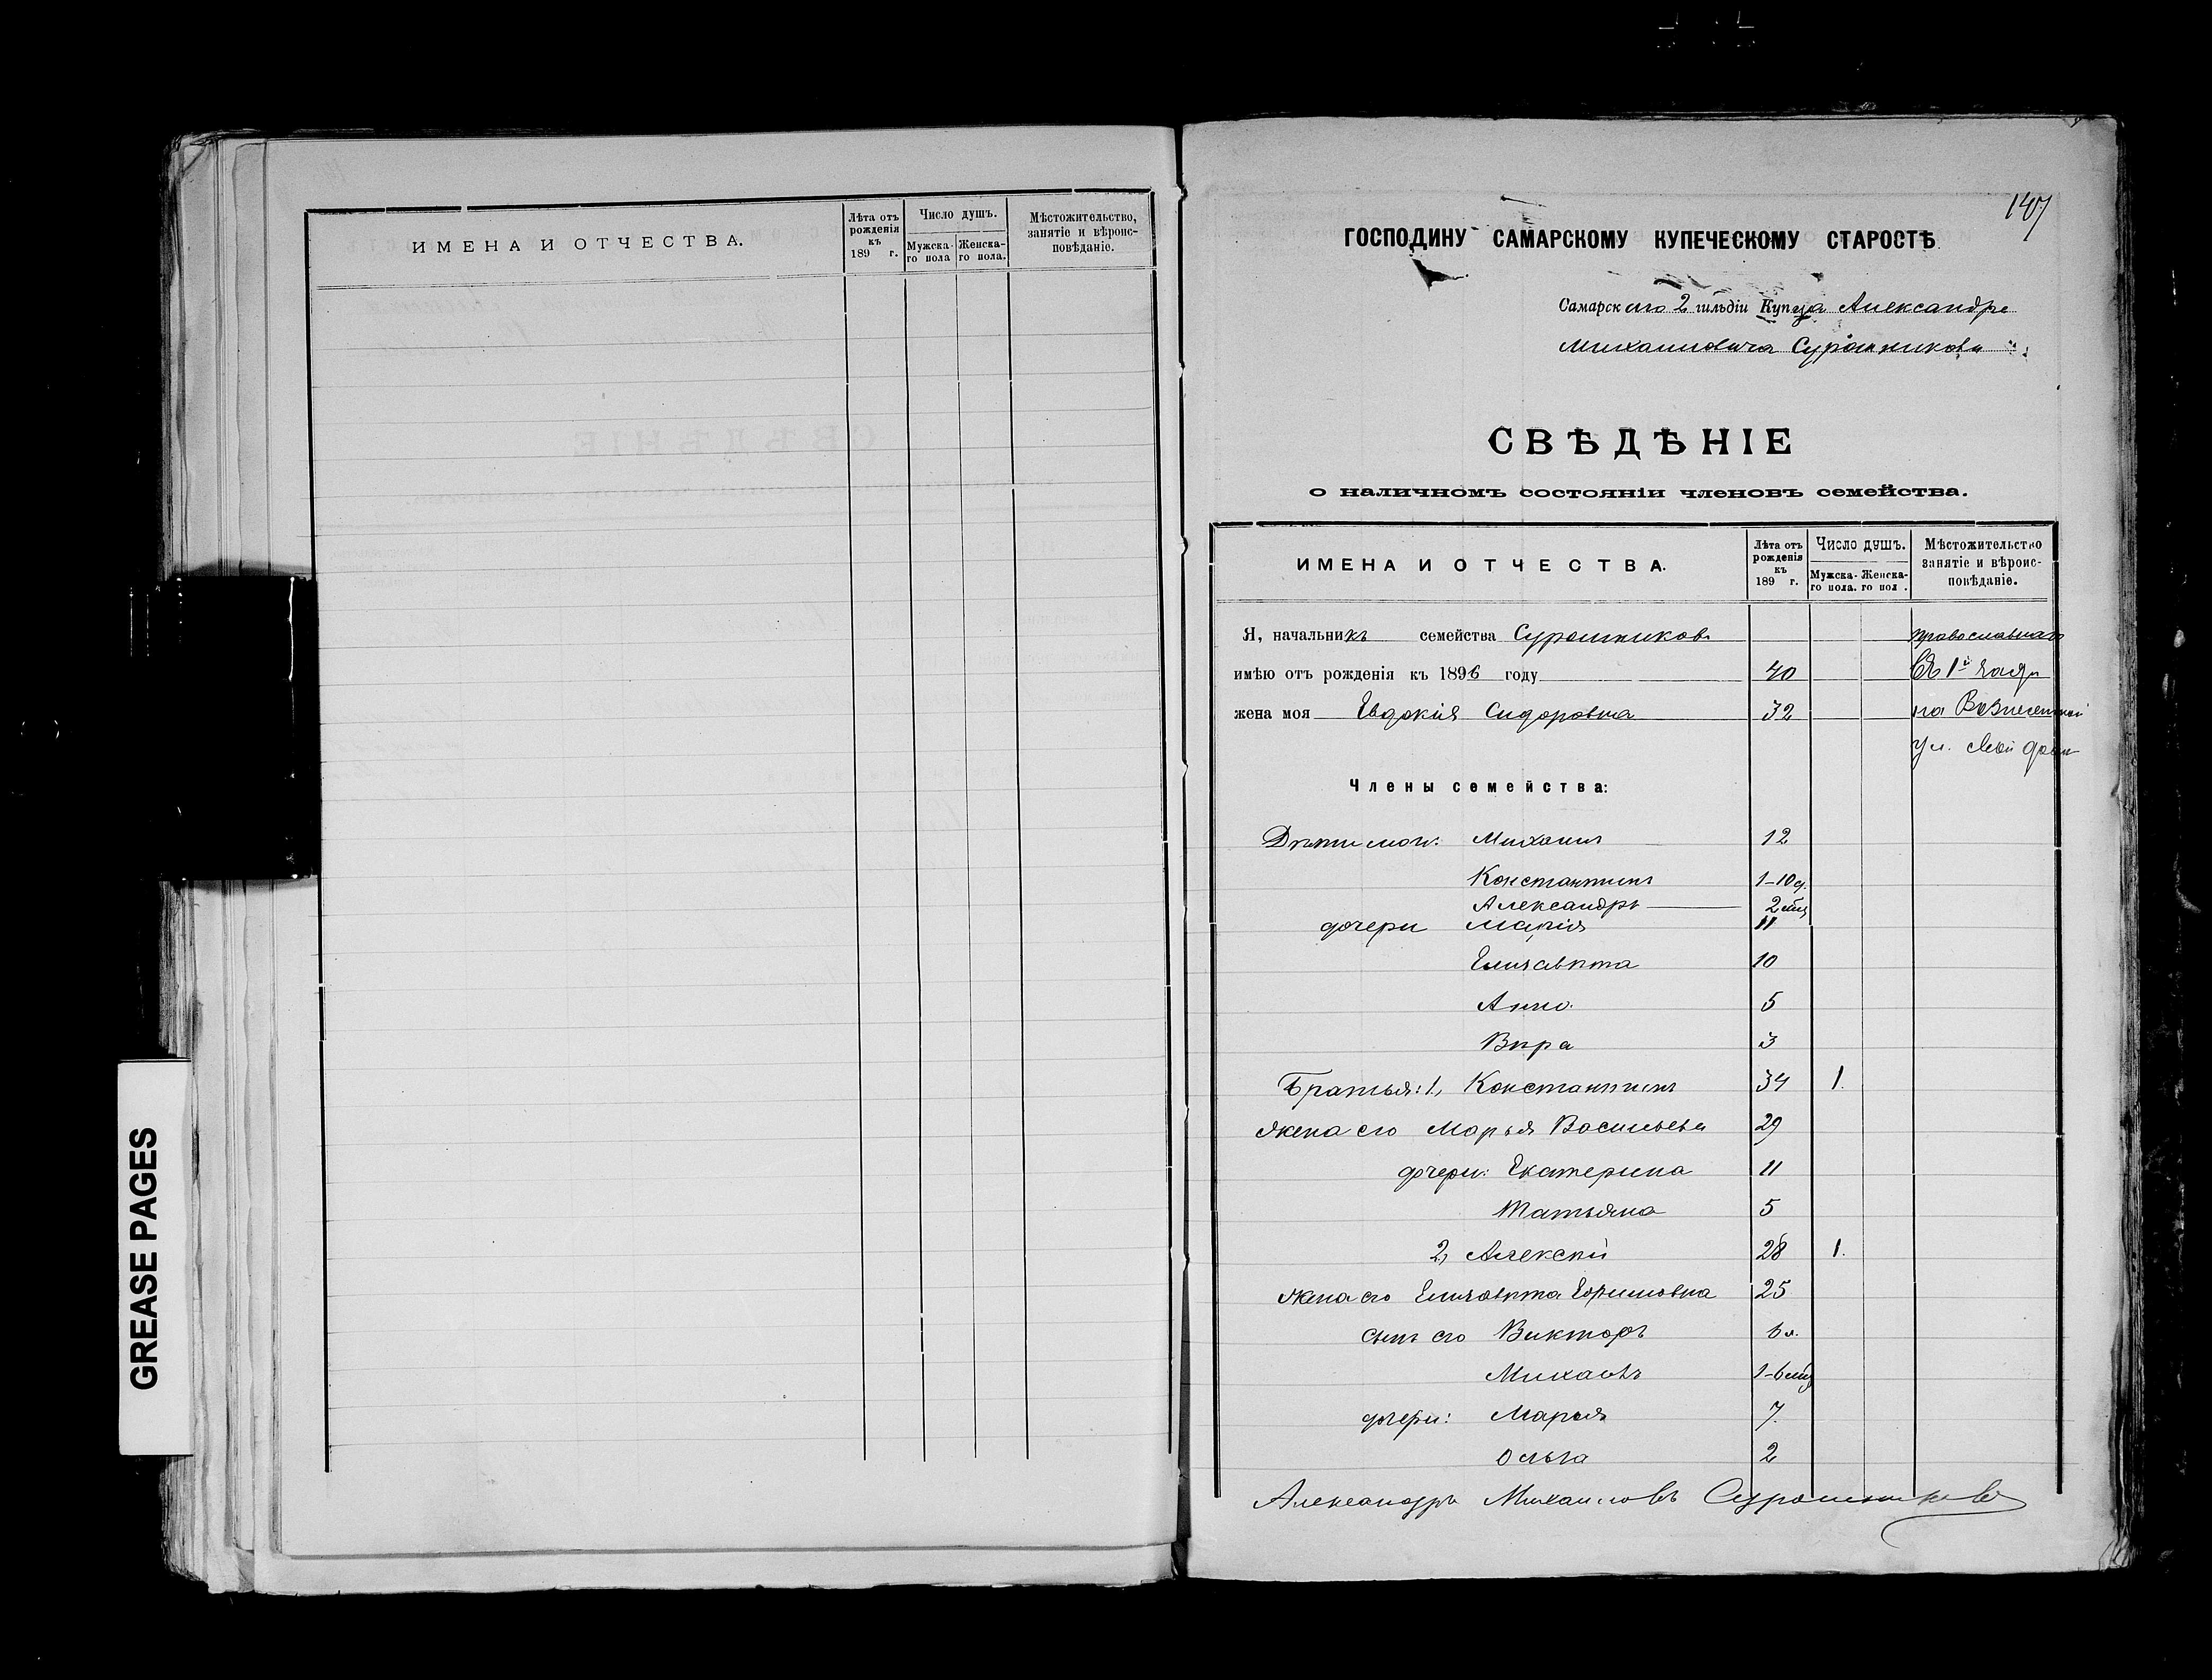 ИМЕНА И ОТЧЕСТВА.
Лѣта отъ рожденія къ 189 г.
Число душъ.
Мужска-го пола
Женска-го пола.
Мѣстожительство, занятіе и вѣроис-повѣданіе.
СВѢДѢНІЕ
GREASE PAGES
147
ГОСПОДИНУ САМАРСКОМУ КУПЕЧЕСКОМУ СТАРОСТѢ
Самарского 2 гильдіи Купца Александра
Михаиловича Сурошникова
СВѢДѢНІЕ
о наличномъ состояніи членовъ семейства.
ИМЕНА И ОТЧЕСТВА.
Лѣта отъ рожденія къ 189 г.
Число душъ.
Мужска-го пола.
Женска-го пол .
Мѣстожительство занятіе и вѣроис-повѣданіе.
Я, начальникъ семейства Сурошниковъ православнаго
имѣю отъ рожденія къ 1896 году 40 Въ 1й части
жена моя Евдокія Сидоровна 32 на Вознесенской
ул. свой домъ
Члены семейства:
Дѣти мои: Михаилъ 12
Константинъ 1-10
Александръ 2 мѣс
дочери Марія 11
Елизавѣта 10
Анна 5
Вѣра 3
Братья: 1, Константинъ 34 1.
жена его Марья Васильева 29
дочери: Екатерина 11
Татьяна 5
2, Алексѣй 28 1.
жена его Елизавѣта Ефимовна 25
сынъ его Викторъ 6 л.
Михаилъ 1-6 мѣс
дочери: Марья 7.
Ольга 2
Александръ Михаиловъ Сурошниковъ